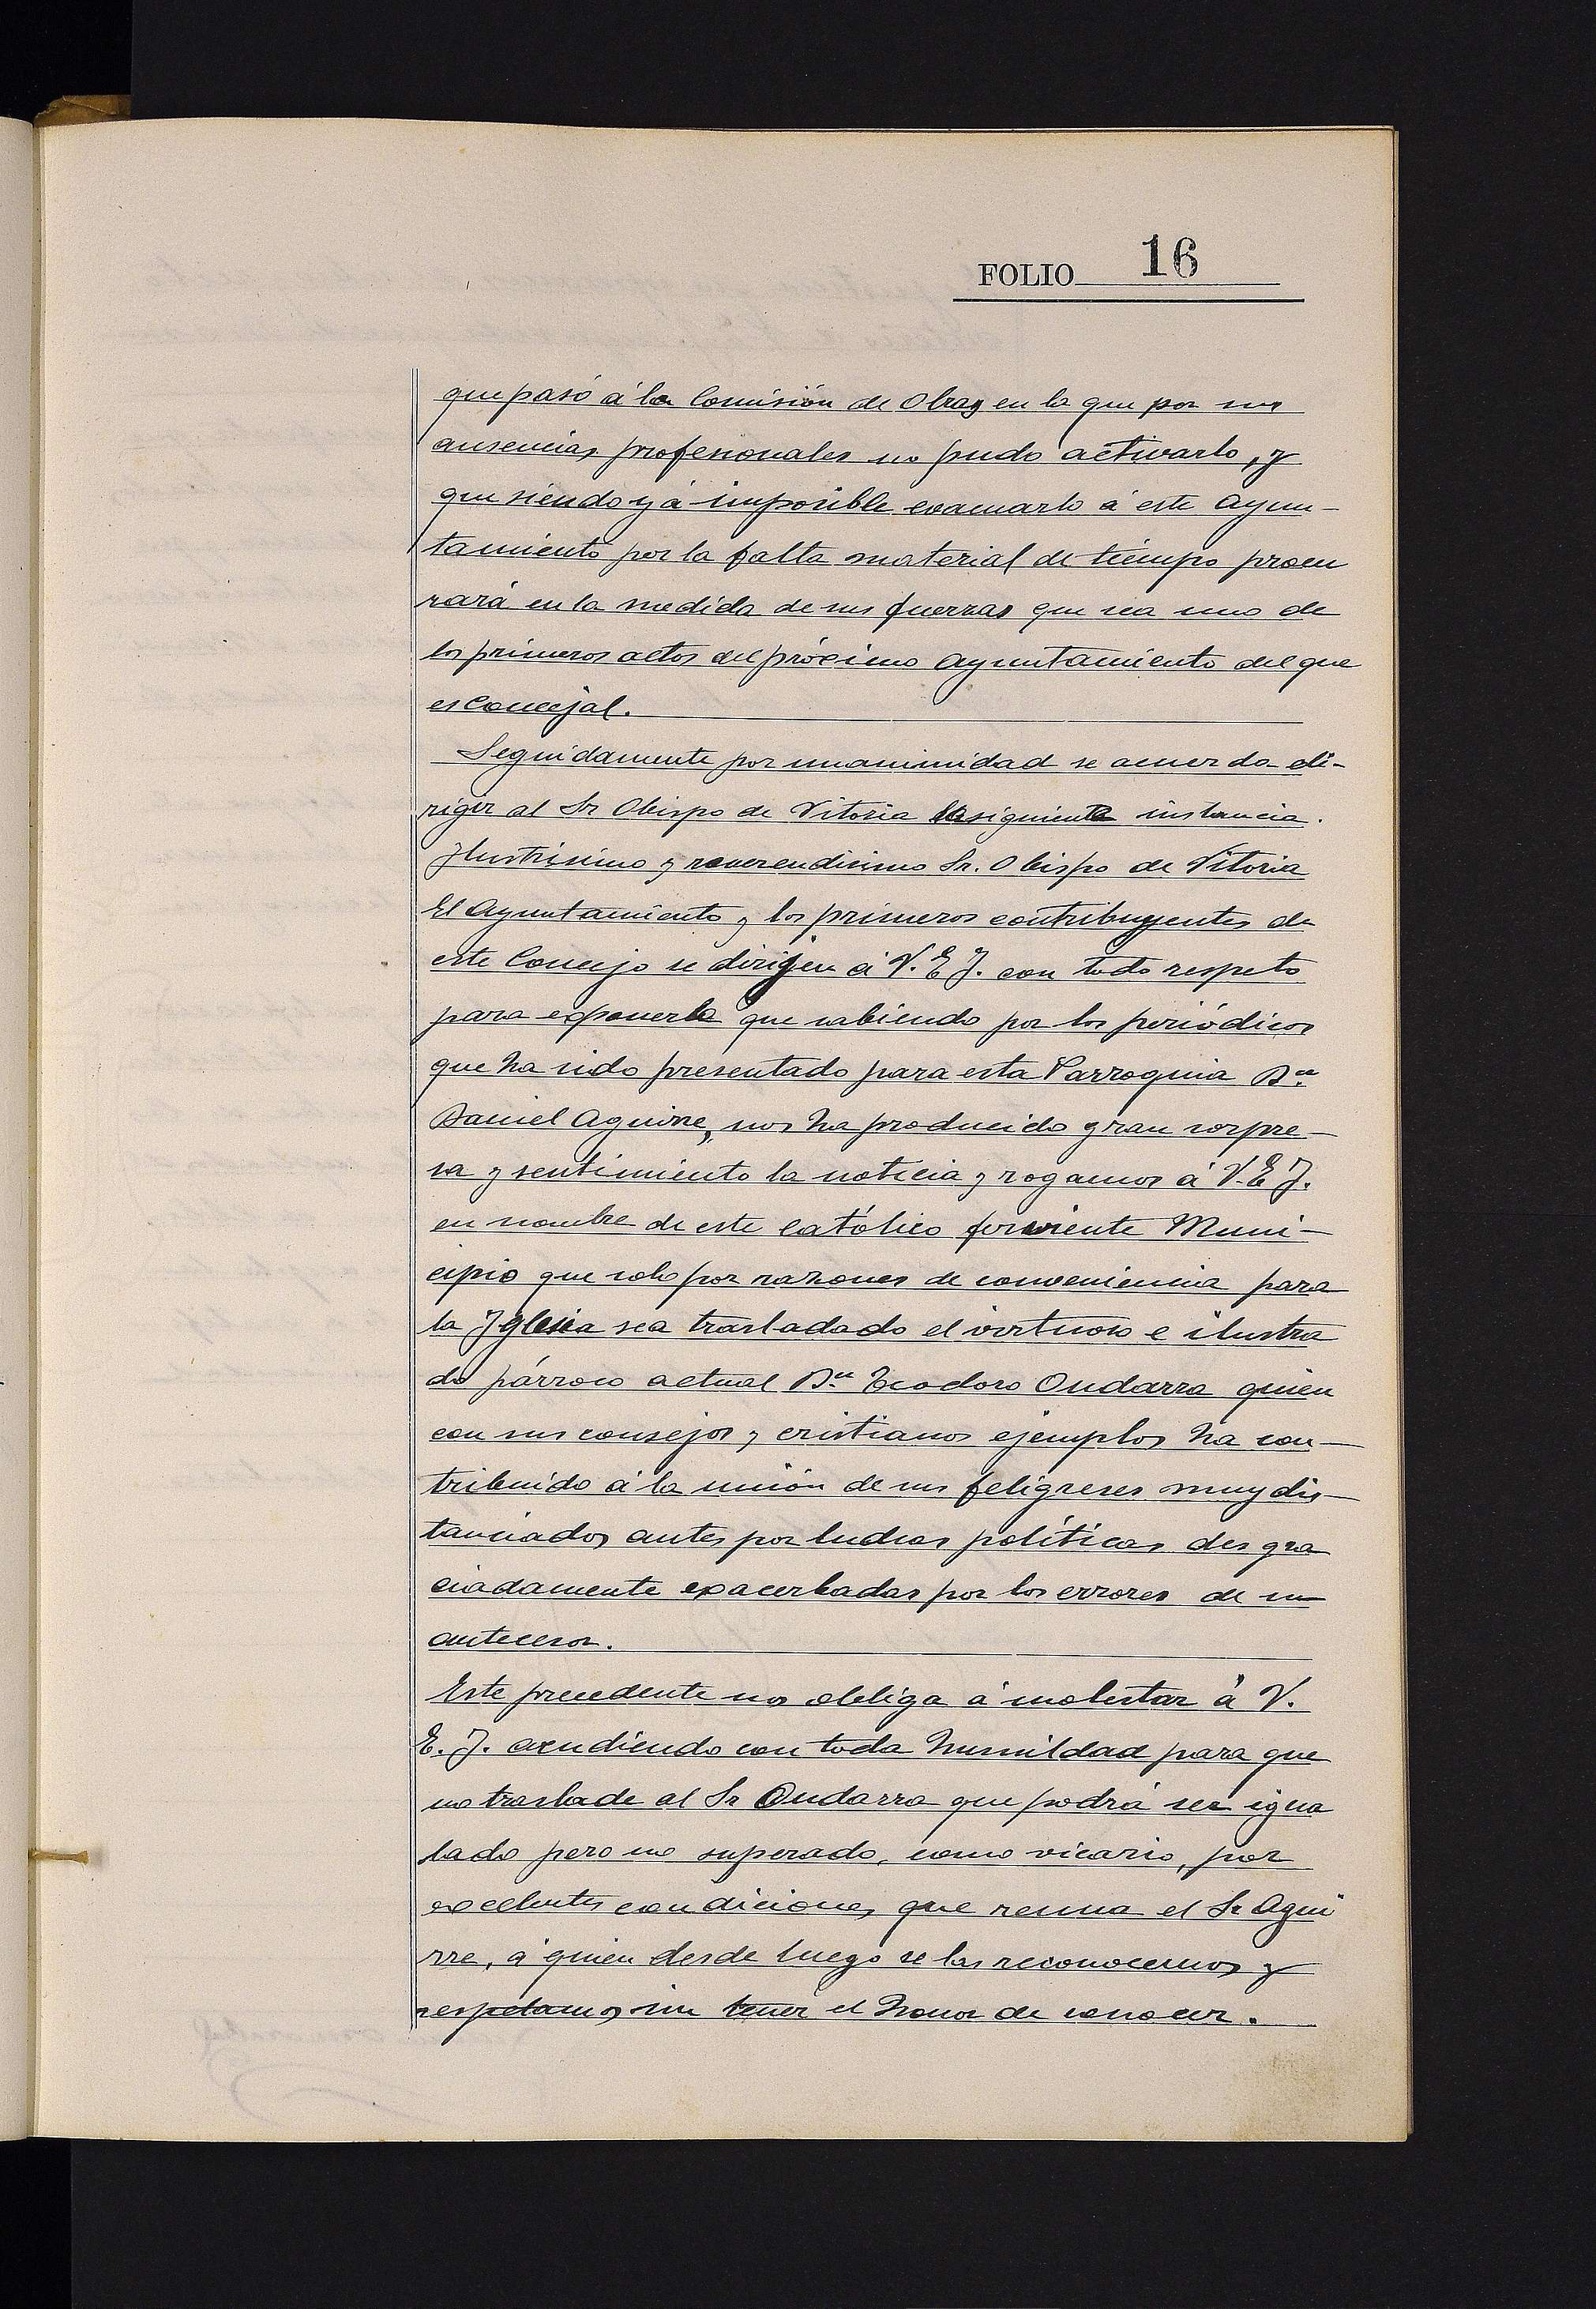 FOLIO 16
que pasó á la Comisión de Obras en la que por sus
ausencias profesionales no pudo activarlo, y
que siendo yá imposible evacuarlo á este Ayun-
tamiento por la falta material de tiempo procu
rará en la medida de sus fuerzas que sea uno de
los primeros actos del próximo Ayuntamiento del que
es Concejal.
Seguidamente por unanimidad se acuerda di-
rigir al Sr Obispo de Vitoria la siguiente instancia.
Ilustrisimo y reverendisimo Sr. Obispo de Vitoria
El Ayuntamiento y los primeros contribuyentes de
este Concejo se dirijen á V. E I. con todo respeto
para exponerle que sabiendo por los periódicos
que ha sido presentado para esta Parroquia Dn
Daniel Aguirre, nos ha producido gran sorpre-
sa y sentimiento la noticia y rogamos á V. E I.
en nombre de este católico ferviente Muni-
cipio que solo por razones de conveniencia para
la Iglesia sea trasladado el virtuoso e ilustra
do párroco actual Dn Teodoro Ondarra quien
con sus consejos y cristianos ejemplos ha con-
tribuido á la unión de sus feligreses muy dis-
tanciados antes por luchas políticas desgra
ciadamente exacerbadas por los errores de su
antecesor.
Este precedente nos obliga á molestar á V.
E. I. acudiendo con toda humildad para que
no traslade al Sr Ondarra que podrá ser igua
lado pero no superado, como vicario, por
excelentes condiciones que reuna el Sr Agui
rre, á quien desde luego se las reconocemos y
respetamos sin tener el honor de conocer.